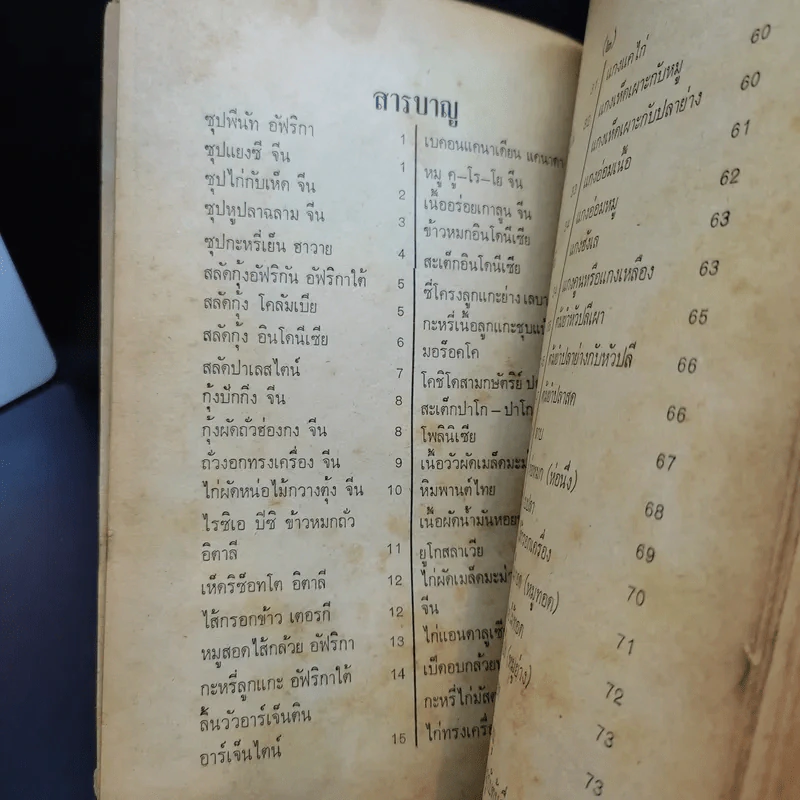 สารบาญ
ซุปพีนัท อัฟริกา 1
ซุปแยงซี จีน 1
ซุปไก่กับเห็ด จีน 2
ซุปหูปลาฉลาม จีน 3
ซุปกะหรี่เย็น ฮาวาย 4
สลัดกุ้งอัฟริกัน อัฟริกาใต้ 5
สลัดกุ้ง โคลัมเบีย 5
สลัดกุ้ง อินโดนีเซีย 6
สลัดปาเลสไตน์ 7
กุ้งปักกิ่ง จีน 8
กุ้งผัดถั่วฮ่องกง จีน 8
ถั่วงอกทรงเครื่อง จีน 9
ไก่ผัดหน่อไม้กวางตุ้ง จีน 10
ไรซิเอ บีซิ ข้าวหมกถั่ว
อิตาลี 11
เห็ดริซ็อทโต อิตาลี 12
ไส้กรอกข้าว เตอรกี 12
หมูสอดไส้กล้วย อัฟริกา 13
กะหรี่ลูกแกะ อัฟริกาใต้ 14
ลิ้นวัวอาร์เจ็นติน
อาร์เจ็นไตน์ 15
เบคอนแคนาเดียน แคนาดา
หมู คู–โร–โย จีน
เนื้ออร่อยเกาลูน จีน
ข้าวหมกอินโดนีเซีย
สะเต็กอินโดนีเซีย
ซี่โครงลูกแกะย่าง
กะหรี่เนื้อลูกแกะชุบ
มอร็อคโค
โคชิโดสามกษัตริย์
สะเต็กปาโก–ปาโก
โพลินิเซีย
เนื้อวัวผัดเมล็ด
หิมพานต์ไทย
เนื้อผัดน้ำมันหอย
ยูโกสลาเวีย
ไก่ผัดเมล็ด
จีน
ไก่แอนดาลู
เป็ดอบกล้วย
กะหรี่ไก่
ไก่ทรงเครื่
(๒)
แกงแคไก่ 60
แกงเห็ดเผาะกับหมู 60
แกงเห็ดเผาะกับปลาย่าง 61
แกงอ่อมเนื้อ 62
แกงอ่อมหมู 63
แกงฮังเล 63
แกงคูนหรือแกงเหลือง 65
66
66
67
(ห่อนึ่ง) 68
69
(หมูทอด) 70
71
72
73
73